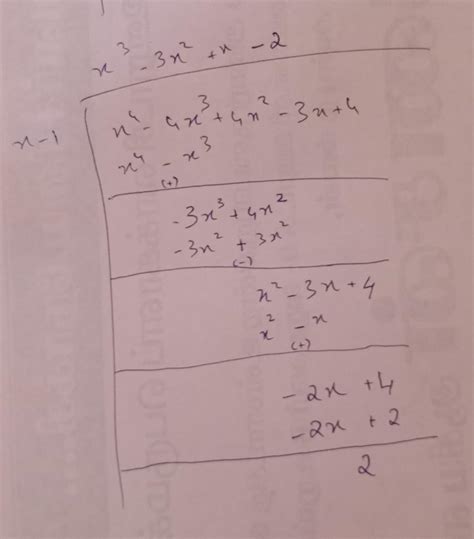 x³ - 3x² + x - 2
x-1
x⁴ - 4x³ + 4x² - 3x + 4
x⁴ - x³
(+)
-3x³ + 4x²
-3x² + 3x²
(-)
x² - 3x + 4
x² - x
(+)
-2x + 4
-2x + 2
2